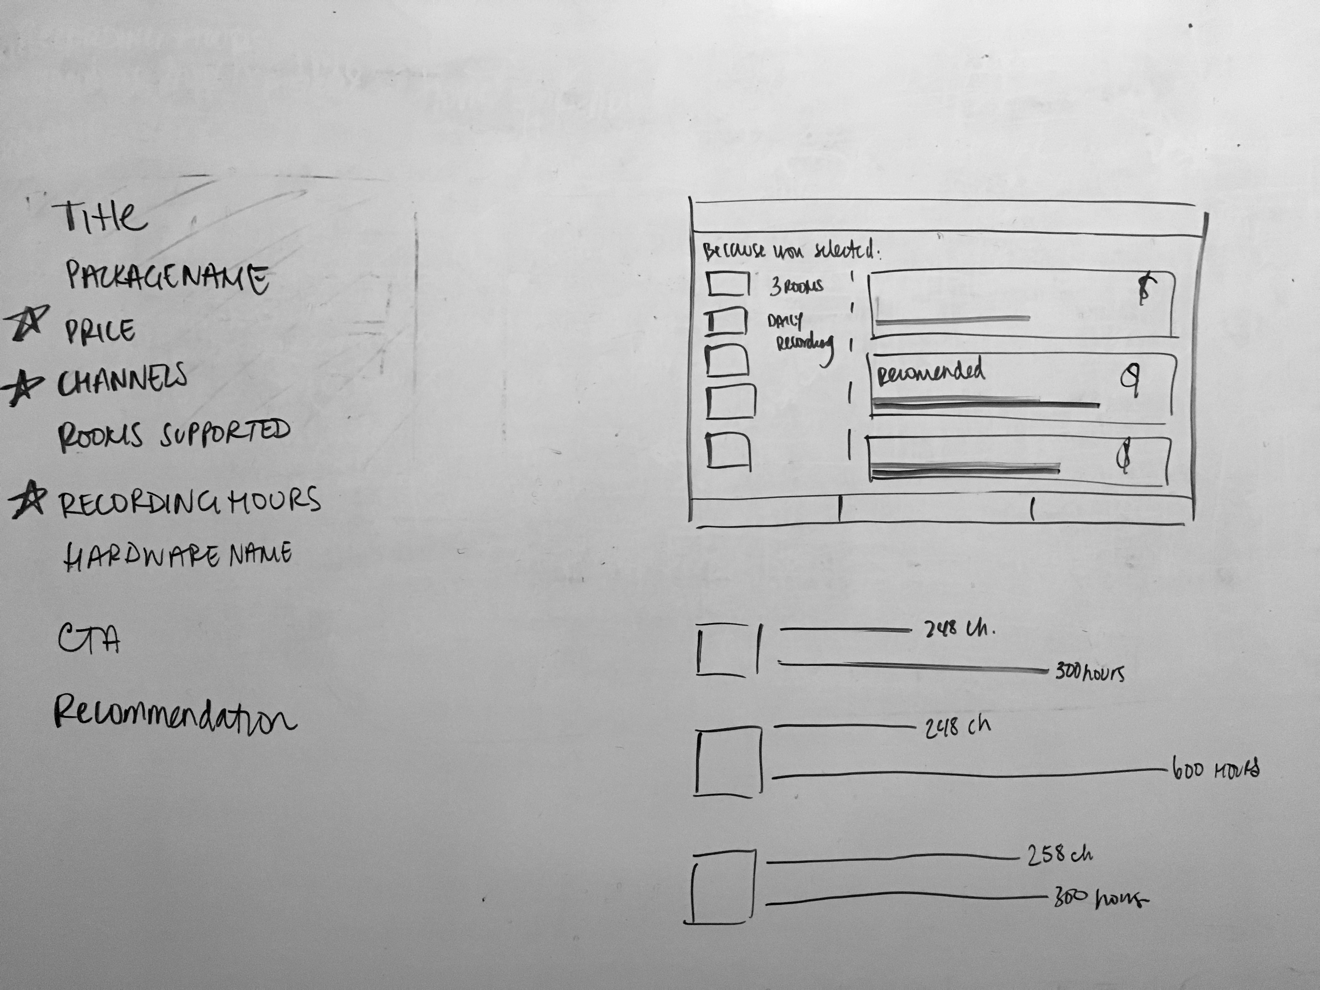 Title
PACKAGE NAME
PRICE
CHANNELS
ROOMS SUPPORTED
RECORDING HOURS
HARDWARE NAME
CTA
Recommendation
Because you selected:
3 ROOMS
DAILY
Recording
$
Recomended
$
$
248 ch.
300 hours
248 ch
600 HOURS
258 ch
300 hours